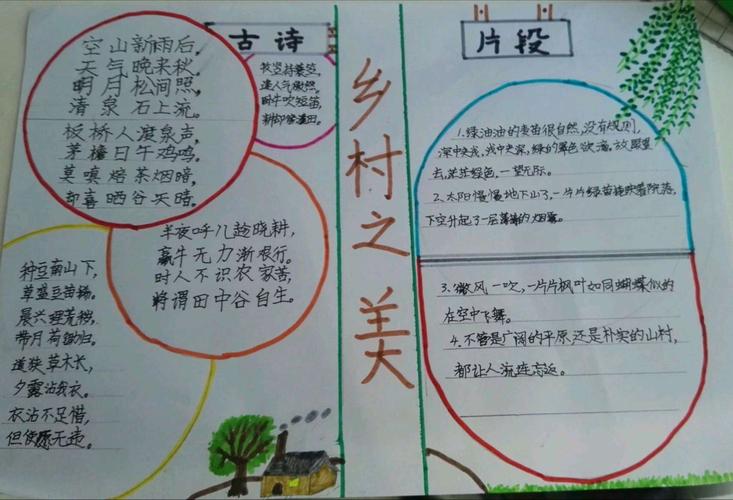 古诗
空山新雨后，
天气晚来秋。
明月松间照，
清泉石上流。
板桥人渡泉声，
茅檐日午鸡鸣。
莫嗔焙茶烟暗，
却喜晒谷天晴。
牧竖持蓑笠，
逢人气傲然。
卧牛吹短笛，
耕却傍溪田。
半夜呼儿趁晓耕，
羸牛无力渐艰行。
时人不识农家苦，
将谓田中谷自生。
种豆南山下，
草盛豆苗稀。
晨兴理荒秽，
带月荷锄归。
道狭草木长，
夕露沾我衣。
衣沾不足惜，
但使愿无违。
乡村之美
片段
1.绿油油的麦苗很自然，没有规则，
深中夹浅，浅中夹深，绿的翠色欲滴，放眼望
去，茫茫绿色，一望无际。
2.太阳慢慢地下山了，一片片绿苗挂映着院落，
下空升起了一层薄薄的烟雾。
3.微风一吹，一片片枫叶如同蝴蝶似的
在空中飞舞。
4.不管是广阔的平原，还是朴实的山村，
都让人流连忘返。